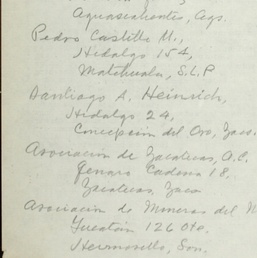 Aguascalientes, Ags.
Pedro Castillo M.,
Hidalgo 154,
Matehuala, S.L.P
Santiago A. Heinrich,
Hidalgo 24,
Concepcion del Oro, Zac.
Asociacion de Zacatecas, A.C.
Genaro Codina 18,
Zacatecas, Zac
Asociacion de Mineros del N
Yucatán 126 Ote.
Hermosillo, Son.